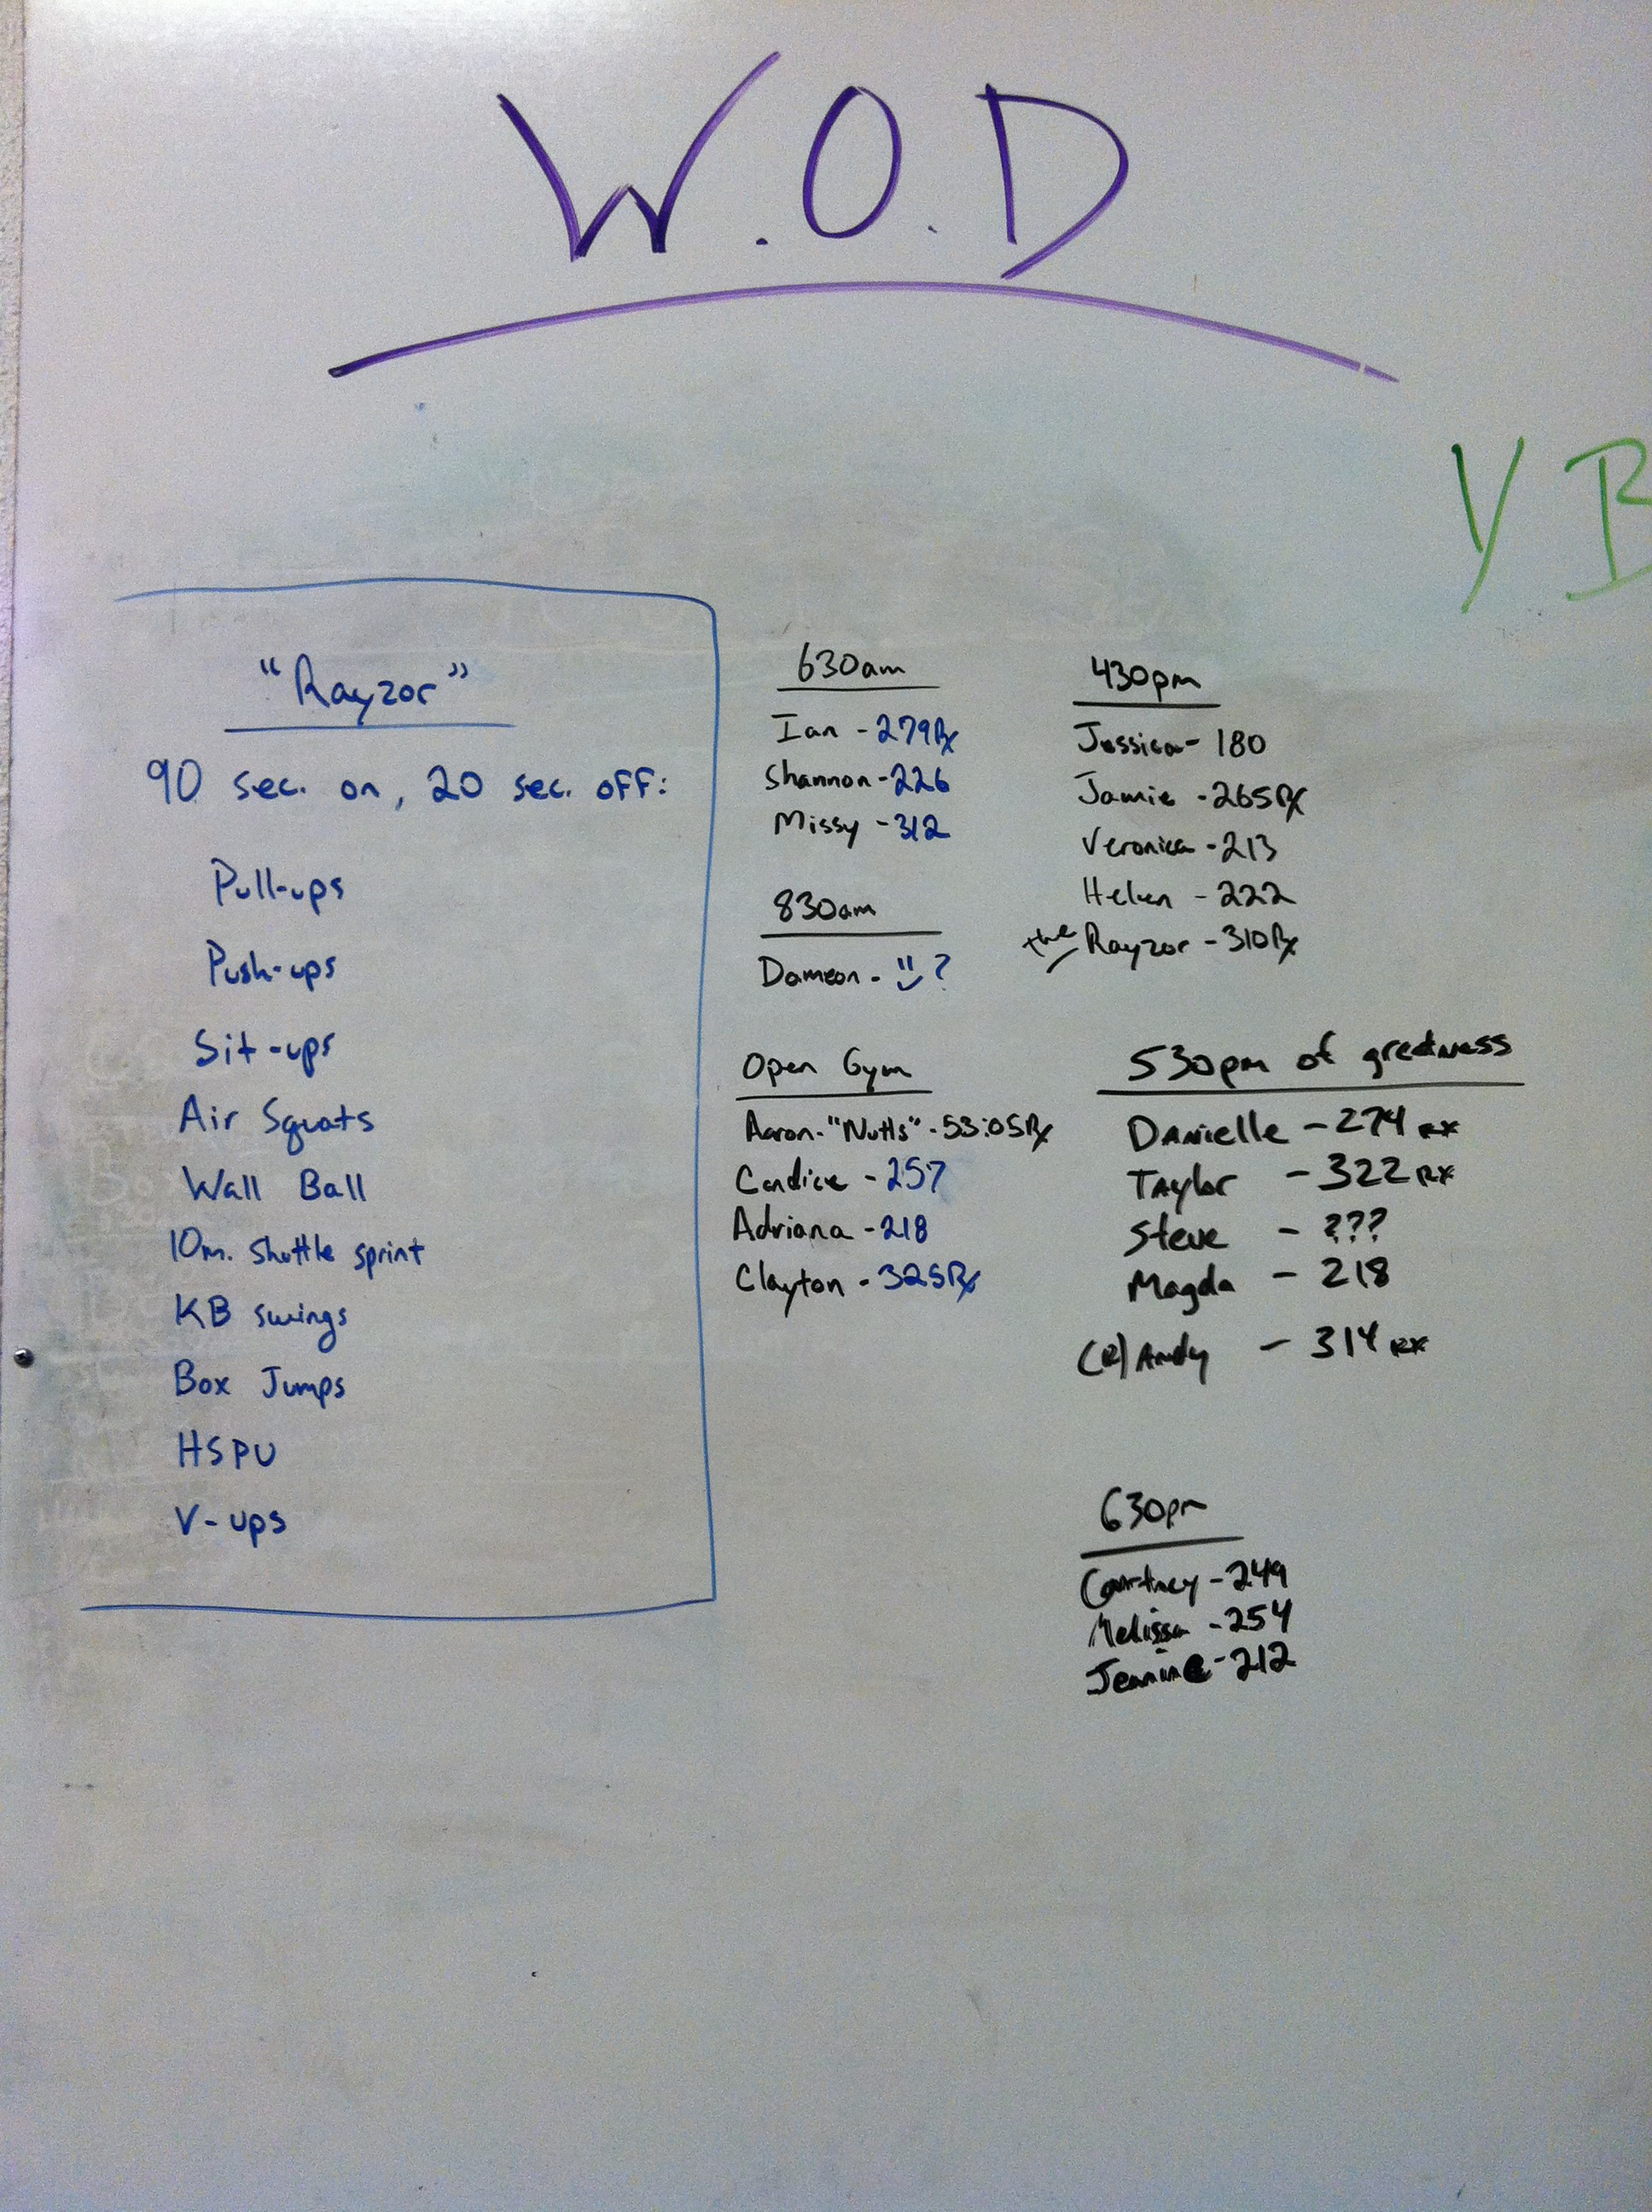 W.O.D
Y B
"Rayzor"
90 sec. on, 20 sec. off:
Pull-ups
Push-ups
Sit-ups
Air Squats
Wall Ball
10m. Shuttle sprint
KB swings
Box Jumps
HSPU
V-ups
630am
Ian - 279 Rx
Shannon - 226
Missy - 312
830am
Dameon - ?
Open Gym
Aaron - "Nutts" - 53:05 Rx
Candice - 257
Adriana - 218
Clayton - 325 Rx
430pm
Jessica - 180
Jamie - 265 Rx
Veronica - 213
Helen - 222
the Rayzor - 310 Rx
530pm of greatness
Danielle - 274 RX
Taylor - 322 RX
Steve - ???
Magda - 218
(R) Andy - 314 RX
630pm
Courtney - 249
Melissa - 254
Jeanine - 212